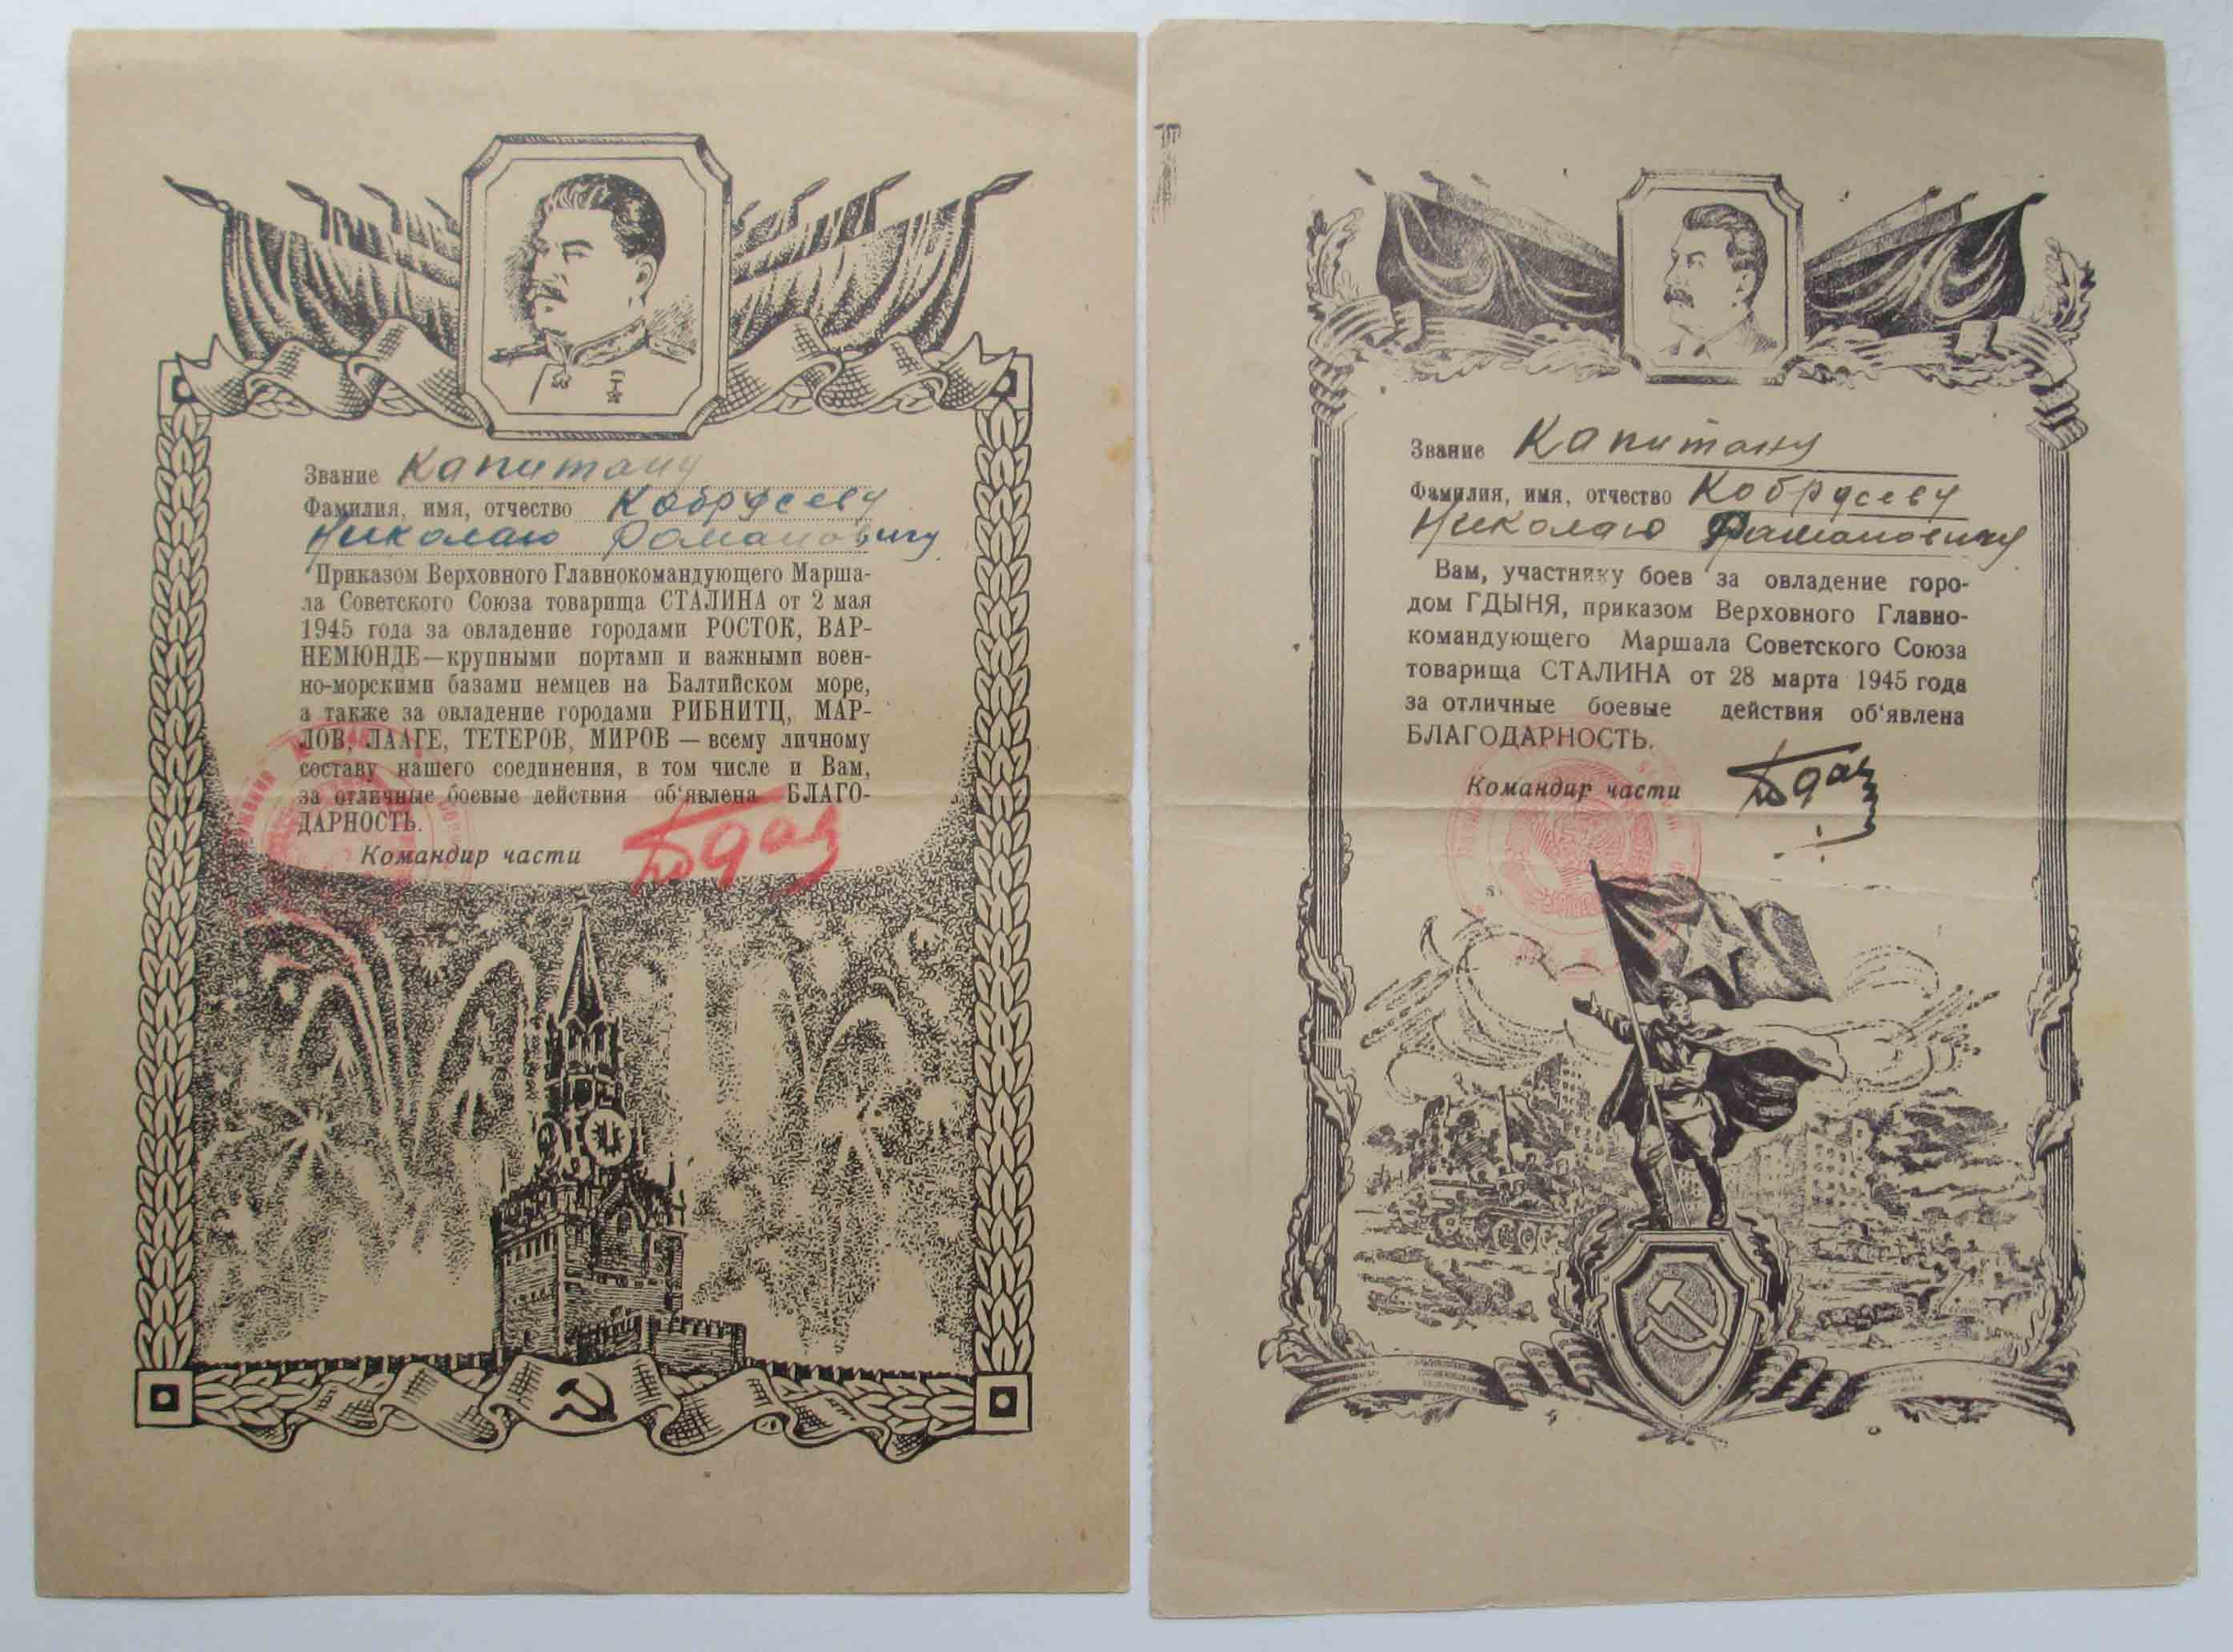 Звание Капитану
Фамилия, имя, отчество Кобрусеву
Николаю Романовичу
Приказом Верховного Главнокомандующего Марша-
ла Советского Союза товарища СТАЛИНА от 2 мая
1945 года за овладение городами РОСТОК, ВАР-
НЕМЮНДЕ—крупными портами и важными воен-
но-морскими базами немцев на Балтийском море,
а также за овладение городами РИБНИТЦ, МАР-
ЛОВ, ЛААГЕ, ТЕТЕРОВ, МИРОВ — всему личному
составу нашего соединения, в том числе и Вам,
за отличные боевые действия об‘явлена БЛАГО-
ДАРНОСТЬ.
Командир части
Звание Капитану
Фамилия, имя, отчество Кобрусеву
Николаю Романовичу
Вам, участнику боев за овладение горо-
дом ГДЫНЯ, приказом Верховного Главно-
командующего Маршала Советского Союза
товарища СТАЛИНА от 28 марта 1945 года
за отличные боевые действия об‘явлена
БЛАГОДАРНОСТЬ.
Командир части